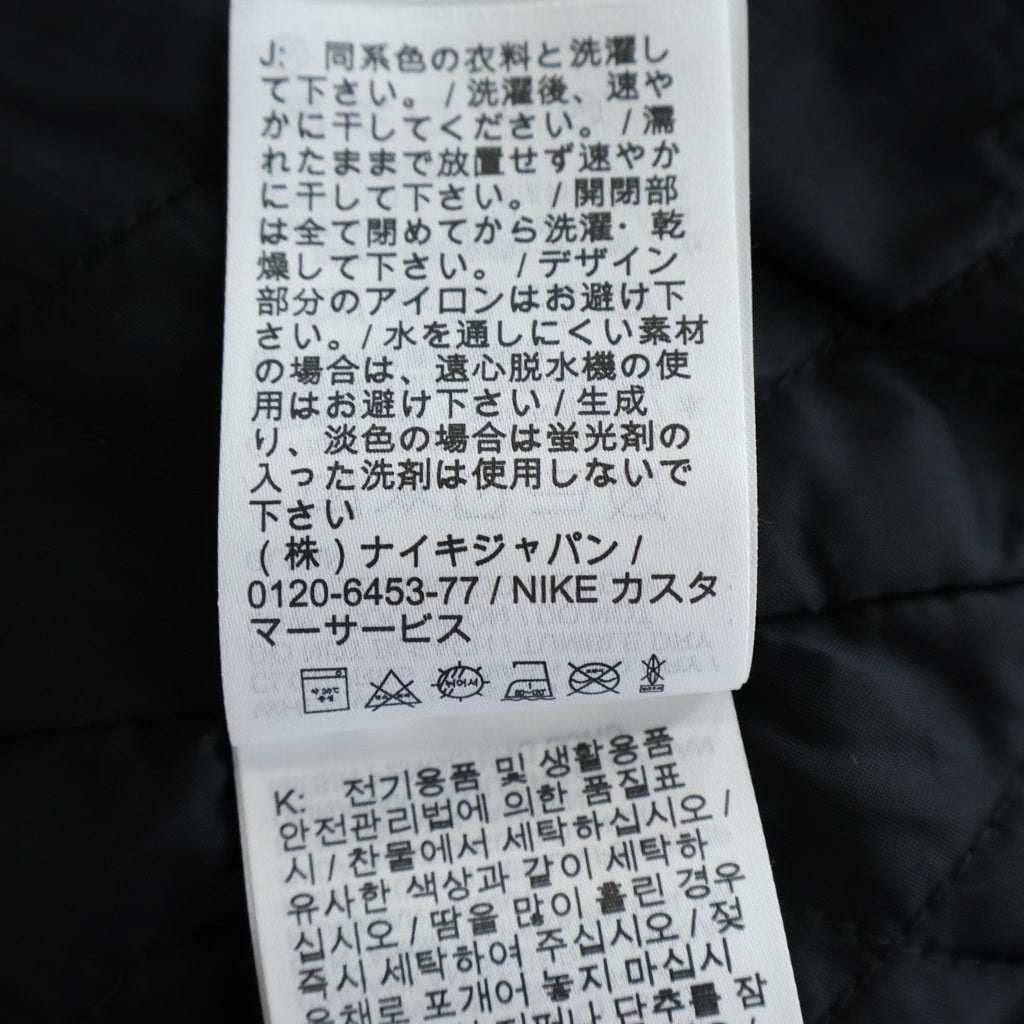 J: 同系色の衣料と洗濯し
て下さい。 / 洗濯後、速や
かに干してください。 / 濡
れたままで放置せず速やか
に干して下さい。 / 開閉部
は全て閉めてから洗濯・乾
燥して下さい。 / デザイン
部分のアイロンはお避け下
さい。 / 水を通しにくい素材
の場合は、遠心脱水機の使
用はお避け下さい / 生成
り、淡色の場合は蛍光剤の
入った洗剤は使用しないで
下さい
(株) ナイキジャパン /
0120-6453-77 / NIKE カスタ
マーサービス
약 30℃
K: 전기용품 및 생활용품
안전관리법에 의한 품질표
시 / 찬물에서 세탁하십시오 /
유사한 색상과 같이 세탁하
십시오 / 땀을 많이 흘린 경우
즉시 세탁하여 주십시오 / 젖
은채로 포개어 놓지 마십시
단추를 잠